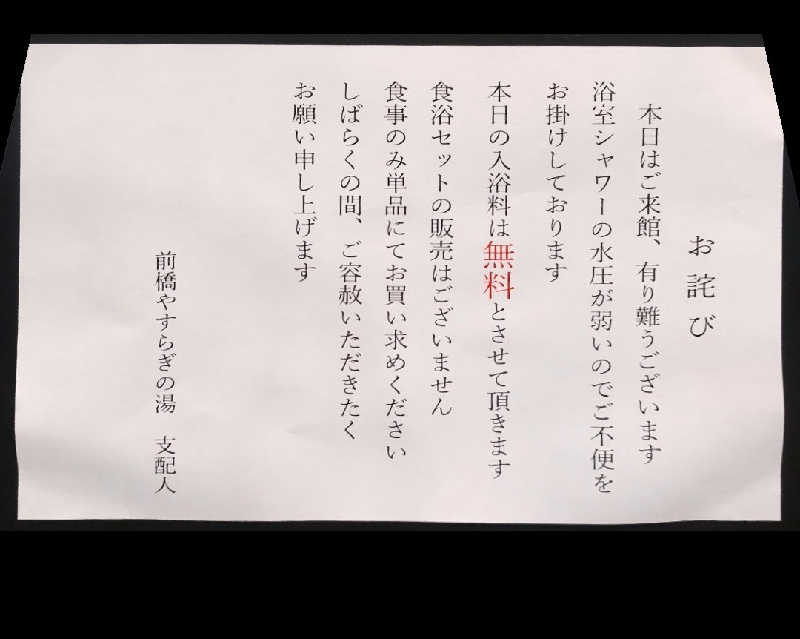 お詫び
本日はご来館、有り難うございます
浴室シャワーの水圧が弱いのでご不便を
お掛けしております
本日の入浴料は無料とさせて頂きます
食浴セットの販売はございません
食事のみ単品にてお買い求めください
しばらくの間、ご容赦いただきたく
お願い申し上げます
前橋やすらぎの湯　支配人